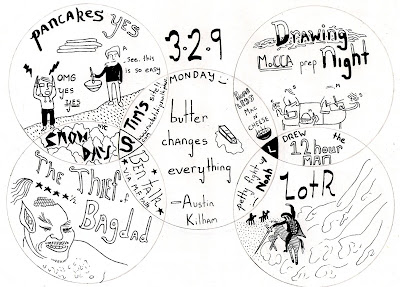 pancakes YES
A
see. this
is so easy
OMG
YES
YES
3·2·9
MONDAY
Drawing
MoCCA prep Night
DREW the
12 hour
MAN
SNOW
DAYS
Tim's
butter
changes
everything
—Austin
Kilham
Mac
n
CHEESE
Ben Talk
pretty fight
Noah
The Thief of
Bagdad
LotR